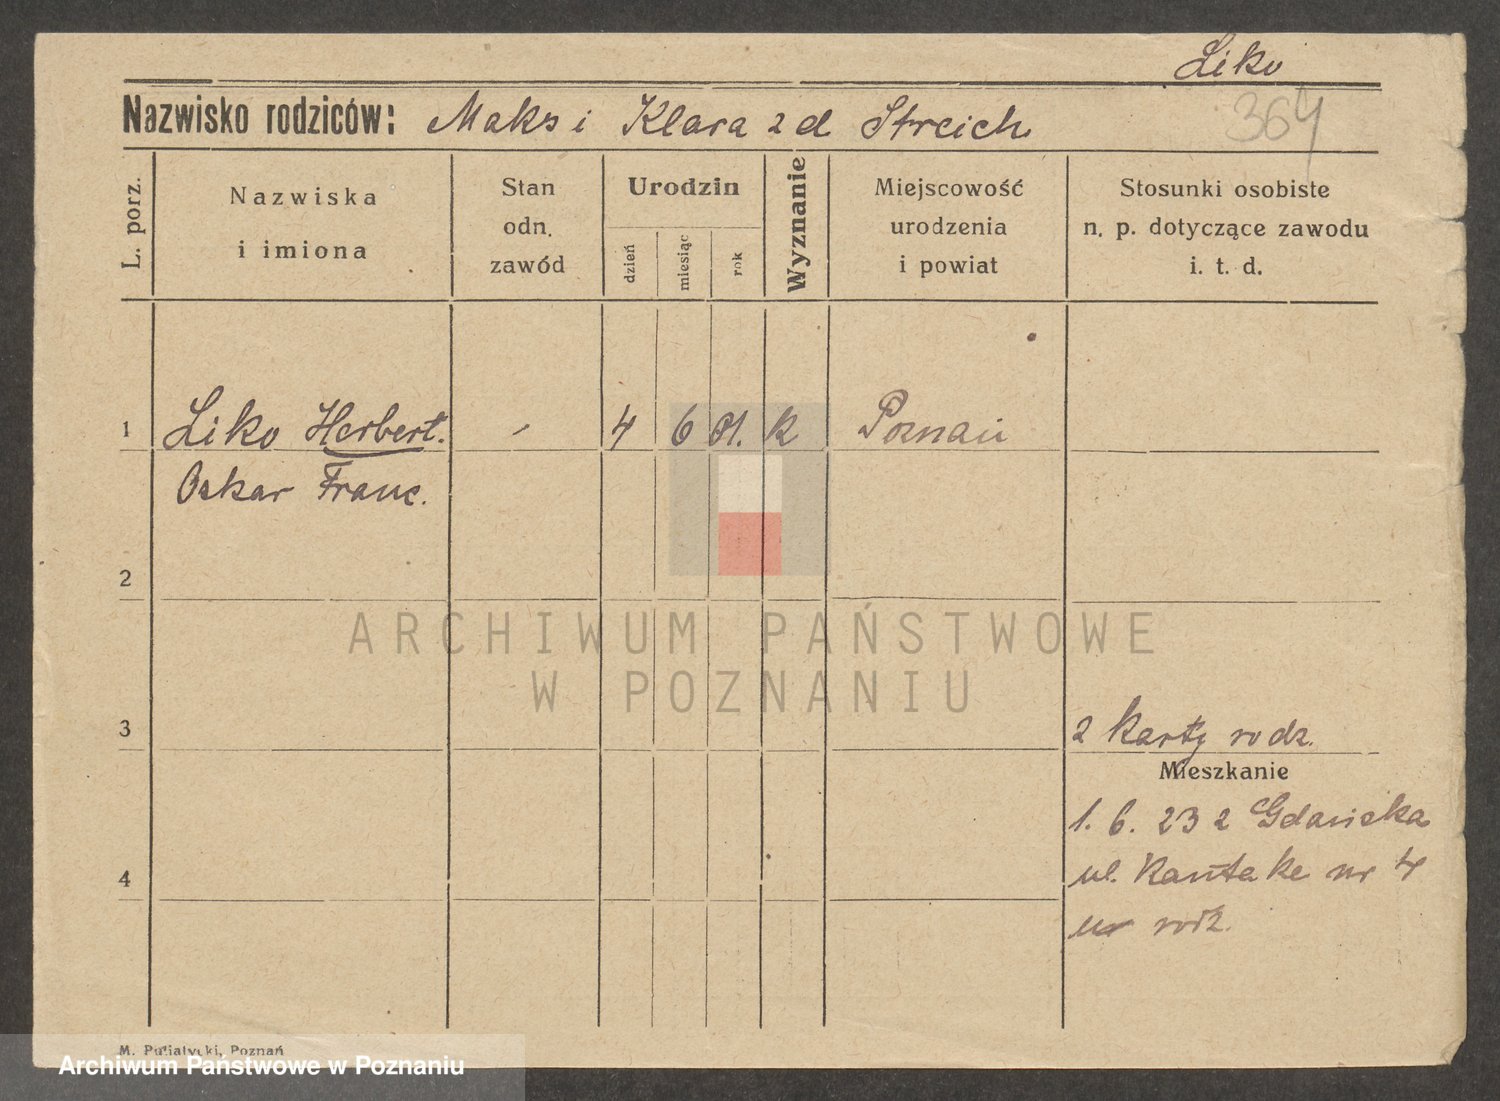 Liko
364
Nazwisko rodziców: Maks i Klara z d Streich
L. porz.
Nazwiska
i imiona
Stan
odn.
zawód
Urodzin
dzień
miesiąc
rok
Wyznanie
Miejscowość
urodzenia
i powiat
Stosunki osobiste
n. p. dotyczące zawodu
i. t. d.
1 Liko Herbert. - 4 6 01. k Poznań
Oskar Franc.
2
ARCHIWUM PAŃSTWOWE
W POZNANIU
3
z karty rodz.
Mieszkanie
1. 6. 23 z Gdańska
4
ul. Kantake nr 4
rodz.
M. Putiatycki, Poznań
Archiwum Państwowe w Poznaniu